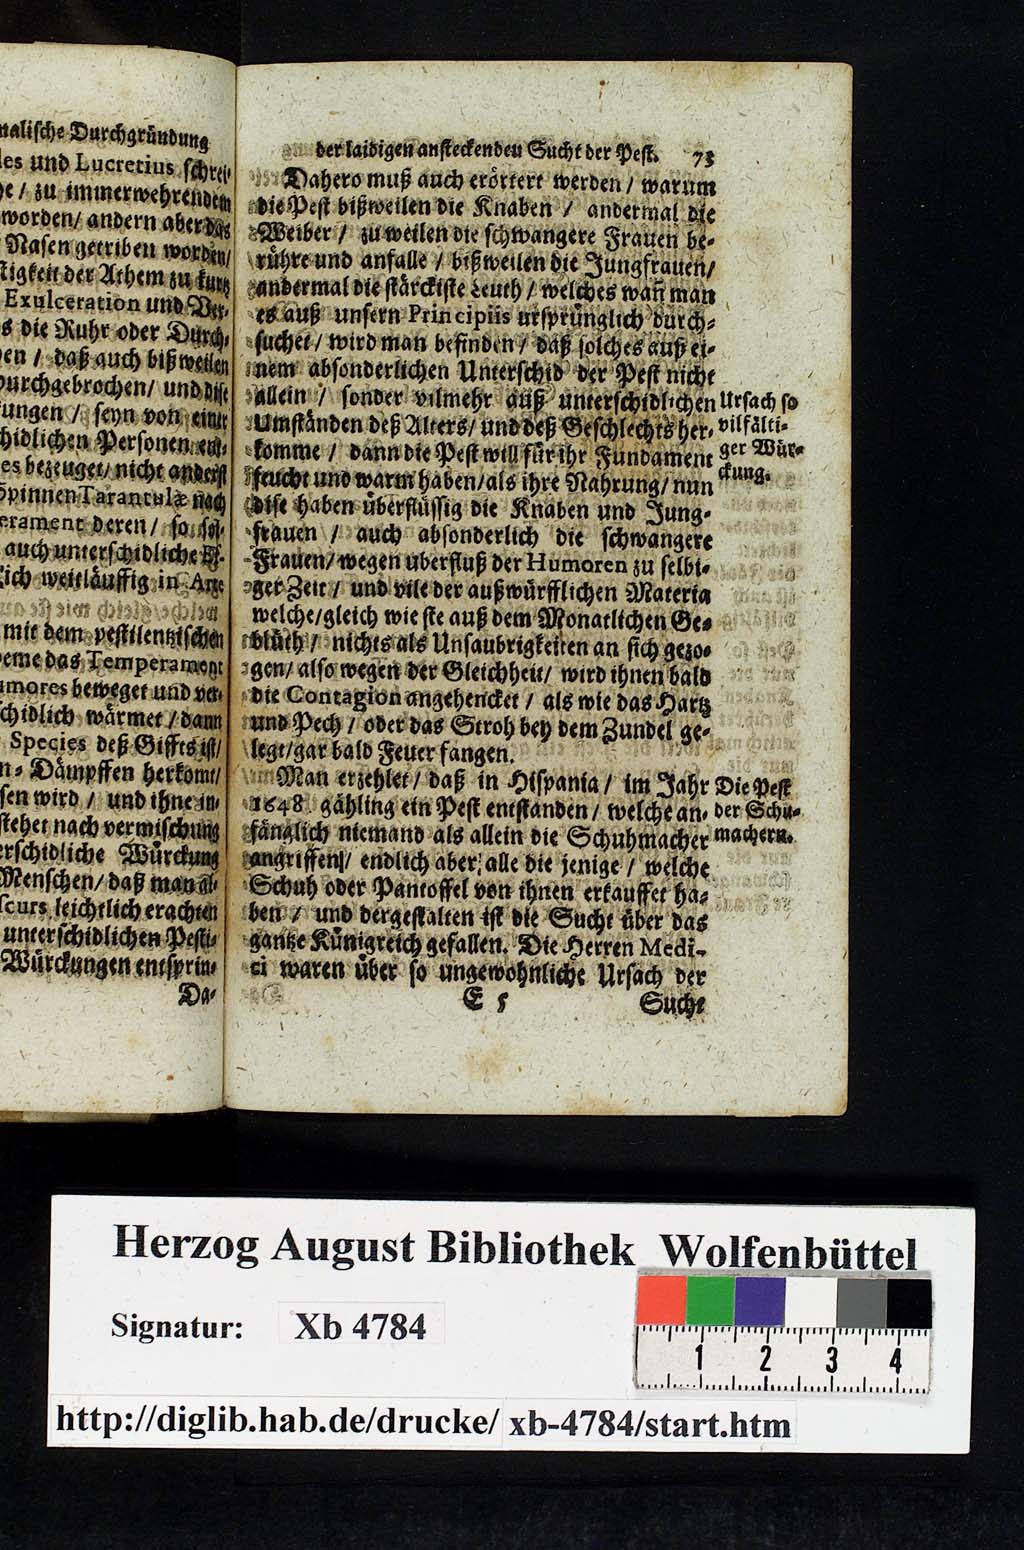 nalische Durchgründung
des und Lucretius schrei-
he / zu immerwehrendem
worden / andern aber das
Nasen getriben worden /
tigkeit der Athem zu kurtz
Exulceration und Ver-
s die Ruhr oder Durch-
en / daß auch bißweilen
durchgebrochen / und dise
ungen / seyn von einer
hidlichen Personen ent-
es bezeuget / nicht anderst
Spinnen Tarantulæ nach
erament deren / so sol-
auch unterschidliche Ef-
lich weitläuffig in Arte
mit dem pestilentzischen
eme das Temperament
umores beweget und ver-
chidlich wärmet / dann
Species deß Giffts ist /
n-Dämpffen herkomt /
sen wird / und ihne in-
stehet nach vermischung
erschidliche Würckung
Menschen / daß man al-
scurs leichtlich erachten
unterschidlichen Pesti-
Würckungen entsprin-
Da-
der laidigen ansteckenden Sucht der Pest. 73
Dahero muß auch erörtert werden / warum
die Pest bißweilen die Knaben / andermal die
Weiber / zuweilen die schwangere Frauen be-
rühre und anfalle / bißweilen die Jungfrauen /
andermal die stärckiste Leuth / welches wañ man
es auß unsern Principiis ursprünglich durch-
suchet / wird man befinden / daß solches auß ei-
nem absonderlichen Unterschid der Pest nicht
allein / sonder vilmehr auß unterschidlichen
Umständen deß Alters / und deß Geschlechts her-
komme / dann die Pest will für ihr Fundament
feucht und warm haben / als ihre Nahrung / nun
dise haben überflüssig die Knaben und Jung-
frauen / auch absonderlich die schwangere
Frauen / wegen uberfluß der Humoren zu selbi-
ger Zeit / und vile der außwürfflichen Materia
welche / gleich wie sie auß dem Monatlichen Ge-
blüth / nichts als Unsaubrigkeiten an sich gezo-
gen / also wegen der Gleichheit / wird ihnen bald
die Contagion angehencket / als wie das Hartz
und Pech / oder das Stroh bey dem Zundel ge-
legt / gar bald Feuer fangen.
Ursach so
vilfälti-
ger Wür-
ckung.
Man erzehlet / daß in Hispania / im Jahr
1648 gähling ein Pest entstanden / welche an-
fänglich niemand als allein die Schuhmacher
angriffen / endlich aber / alle die jenige / welche
Schuh oder Pantoffel von ihnen erkauffet ha-
ben / und dergestalten ist die Sucht über das
gantze Künigreich gefallen. Die Herren Medi-
ci waren über so ungewohnliche Ursach der
Die Pest
der Schu-
machern.
E 5 Sucht
Herzog August Bibliothek Wolfenbüttel
Signatur: Xb 4784
1 2 3 4
http://diglib.hab.de/drucke/ xb-4784/start.htm